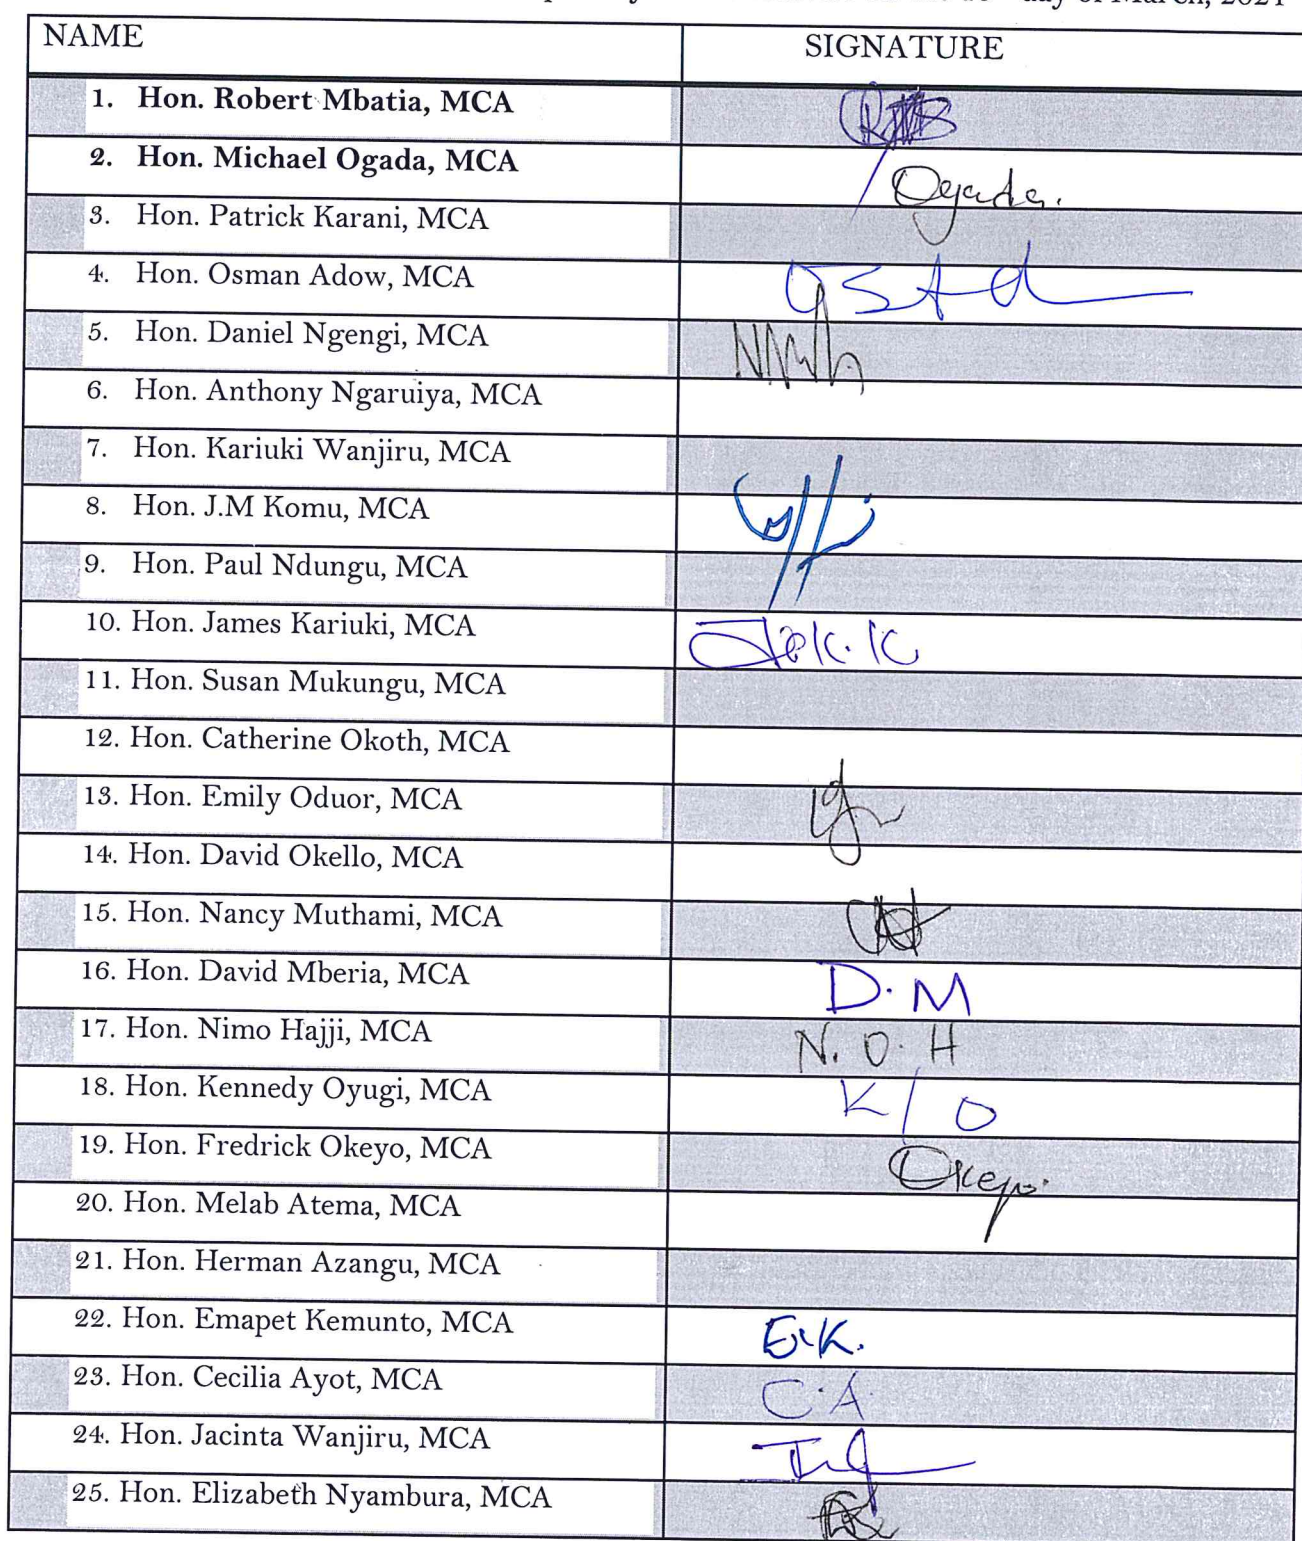 day of March, 2021
NAME SIGNATURE
1. Hon. Robert Mbatia, MCA
2. Hon. Michael Ogada, MCA Ogada.
3. Hon. Patrick Karani, MCA
4. Hon. Osman Adow, MCA
5. Hon. Daniel Ngengi, MCA
6. Hon. Anthony Ngaruiya, MCA
7. Hon. Kariuki Wanjiru, MCA
8. Hon. J.M Komu, MCA
9. Hon. Paul Ndungu, MCA
10. Hon. James Kariuki, MCA
11. Hon. Susan Mukungu, MCA
12. Hon. Catherine Okoth, MCA
13. Hon. Emily Oduor, MCA
14. Hon. David Okello, MCA
15. Hon. Nancy Muthami, MCA
16. Hon. David Mberia, MCA D. M
17. Hon. Nimo Hajji, MCA N. O. H
18. Hon. Kennedy Oyugi, MCA K/O
19. Hon. Fredrick Okeyo, MCA Okeyo.
20. Hon. Melab Atema, MCA
21. Hon. Herman Azangu, MCA
22. Hon. Emapet Kemunto, MCA E.K.
23. Hon. Cecilia Ayot, MCA C.A.
24. Hon. Jacinta Wanjiru, MCA
25. Hon. Elizabeth Nyambura, MCA